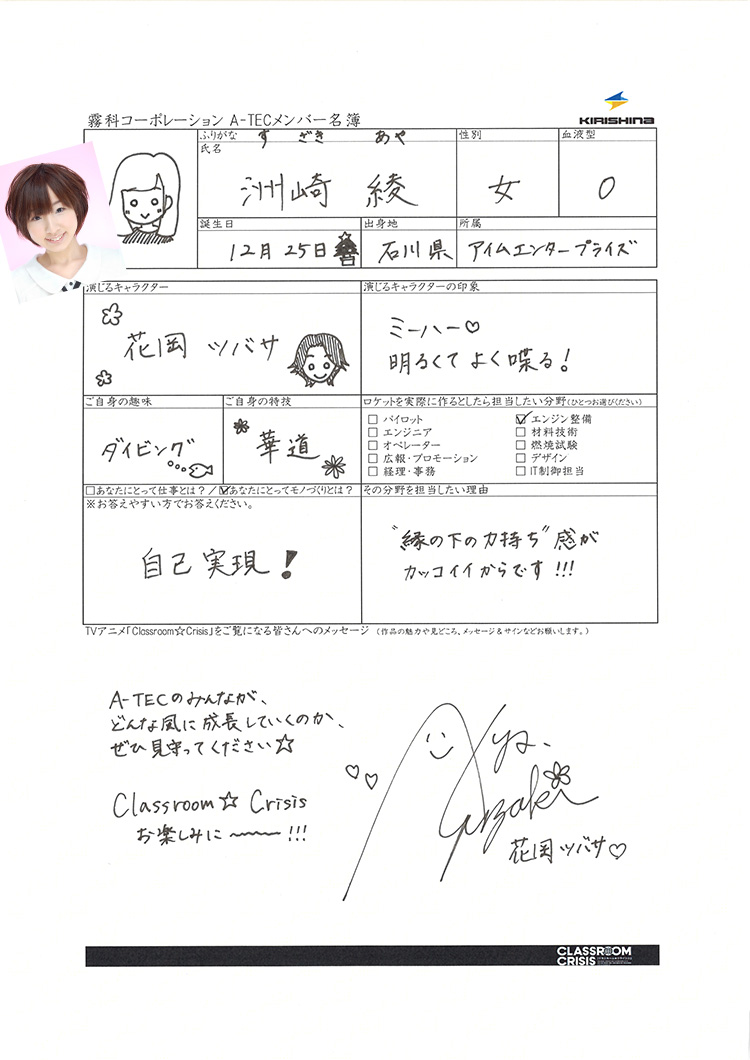 KIRISHINA
霧科コーポレーション A-TECメンバー名簿
ふりがな す ざき あや
性別
血液型
氏名
洲崎 綾
女
O
誕生日
出身地
所属
12月25日
石川県
アイムエンタープライズ
演じるキャラクター
演じるキャラクターの印象
花岡 ツバサ
ミーハー♡
明るくて よく喋る!
ご自身の趣味
ご自身の特技
ロケットを実際に作るとしたら担当したい分野(ひとつお選びください)
ダイビング
華道
□ パイロット
□ エンジニア
□ オペレーター
□ 広報・プロモーション
□ 経理・事務
☑ エンジン整備
□ 材料技術
□ 燃焼試験
□ デザイン
□ IT制御担当
□あなたにとって仕事とは?/☑あなたにとってモノづくりとは?
その分野を担当したい理由
※お答えやすい方でお答えください。
自己実現!
"縁の下の力持ち"感が
カッコイイからです!!!
TVアニメ「Classroom☆Crisis」をご覧になる皆さんへのメッセージ (作品の魅力や見どころ、メッセージ&サインなどお願いします。)
A-TECのみんなが、
どんな風に成長していくのか、
ぜひ見守ってください☆
Classroom☆Crisis
お楽しみに〜〜〜!!!
Aya.
Suzaki
花岡ツバサ♡
CLASSROOM
CRISIS